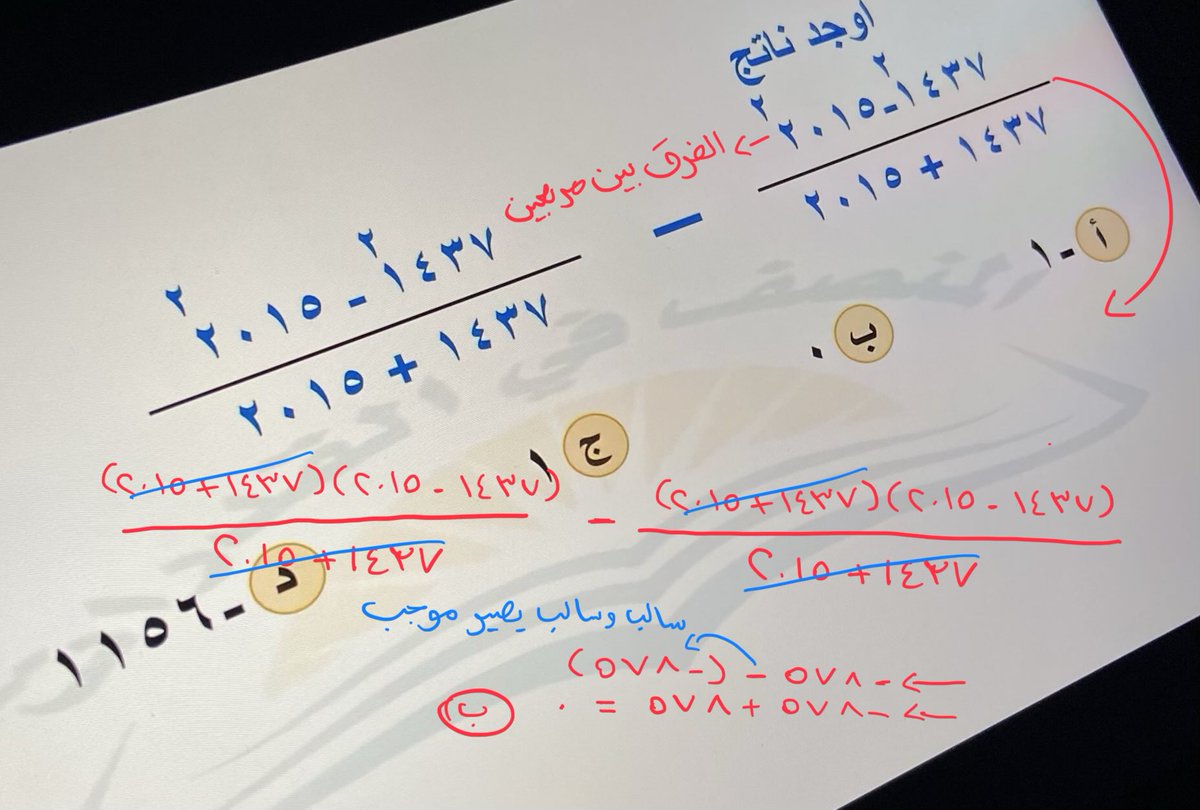 اوجد ناتج
٢ ٢
١٤٣٧ - ٢٠١٥
١٤٣٧ + ٢٠١٥
← الفرق بين مربعين
-
٢ ٢
١٤٣٧ - ٢٠١٥
١٤٣٧ + ٢٠١٥
أ -١
ب ٠
ج ١
د -١١٥٦
(١٤٣٧ - ٢٠١٥)(١٤٣٧+٢٠١٥) - (١٤٣٧ - ٢٠١٥)(١٤٣٧+٢٠١٥)
١٤٣٧+٢٠١٥ ١٤٣٧+٢٠١٥
سالب وسالب يصير موجب
← -٥٧٨ - (-٥٧٨)
← -٥٧٨ + ٥٧٨ = ٠ ب